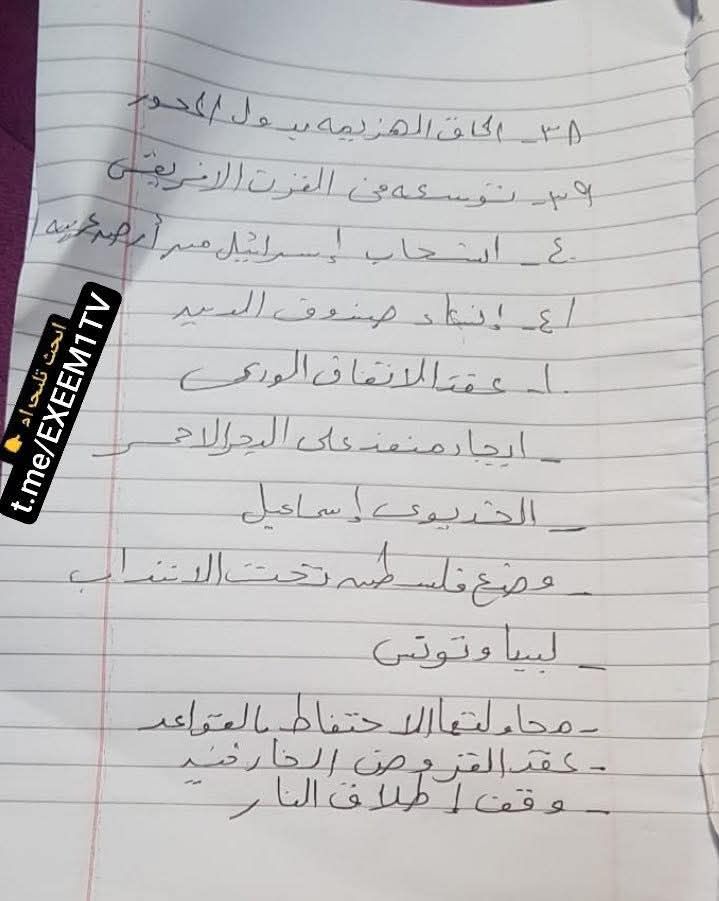 ٣٨- الحاق الهزيمه بدول المحور
٣٩- توسعه في القرن الافريقي
٤٠- انسحاب إسرائيل من أرض عربيه
٤١- إنشاء صندوق الدين
١- عقد الاتفاق الودى
- ايجاد منفذ على البحر الاحمر
- الخديوى إسماعيل
- وضع فلسطين تحت الانتداب
- ليبيا وتونس
- محاولتها الاحتفاظ بالقواعد
- عقد القروض الخارجيه
- وقف إطلاق النار
ابحث تليجرام
t.me/EXEEM1TV